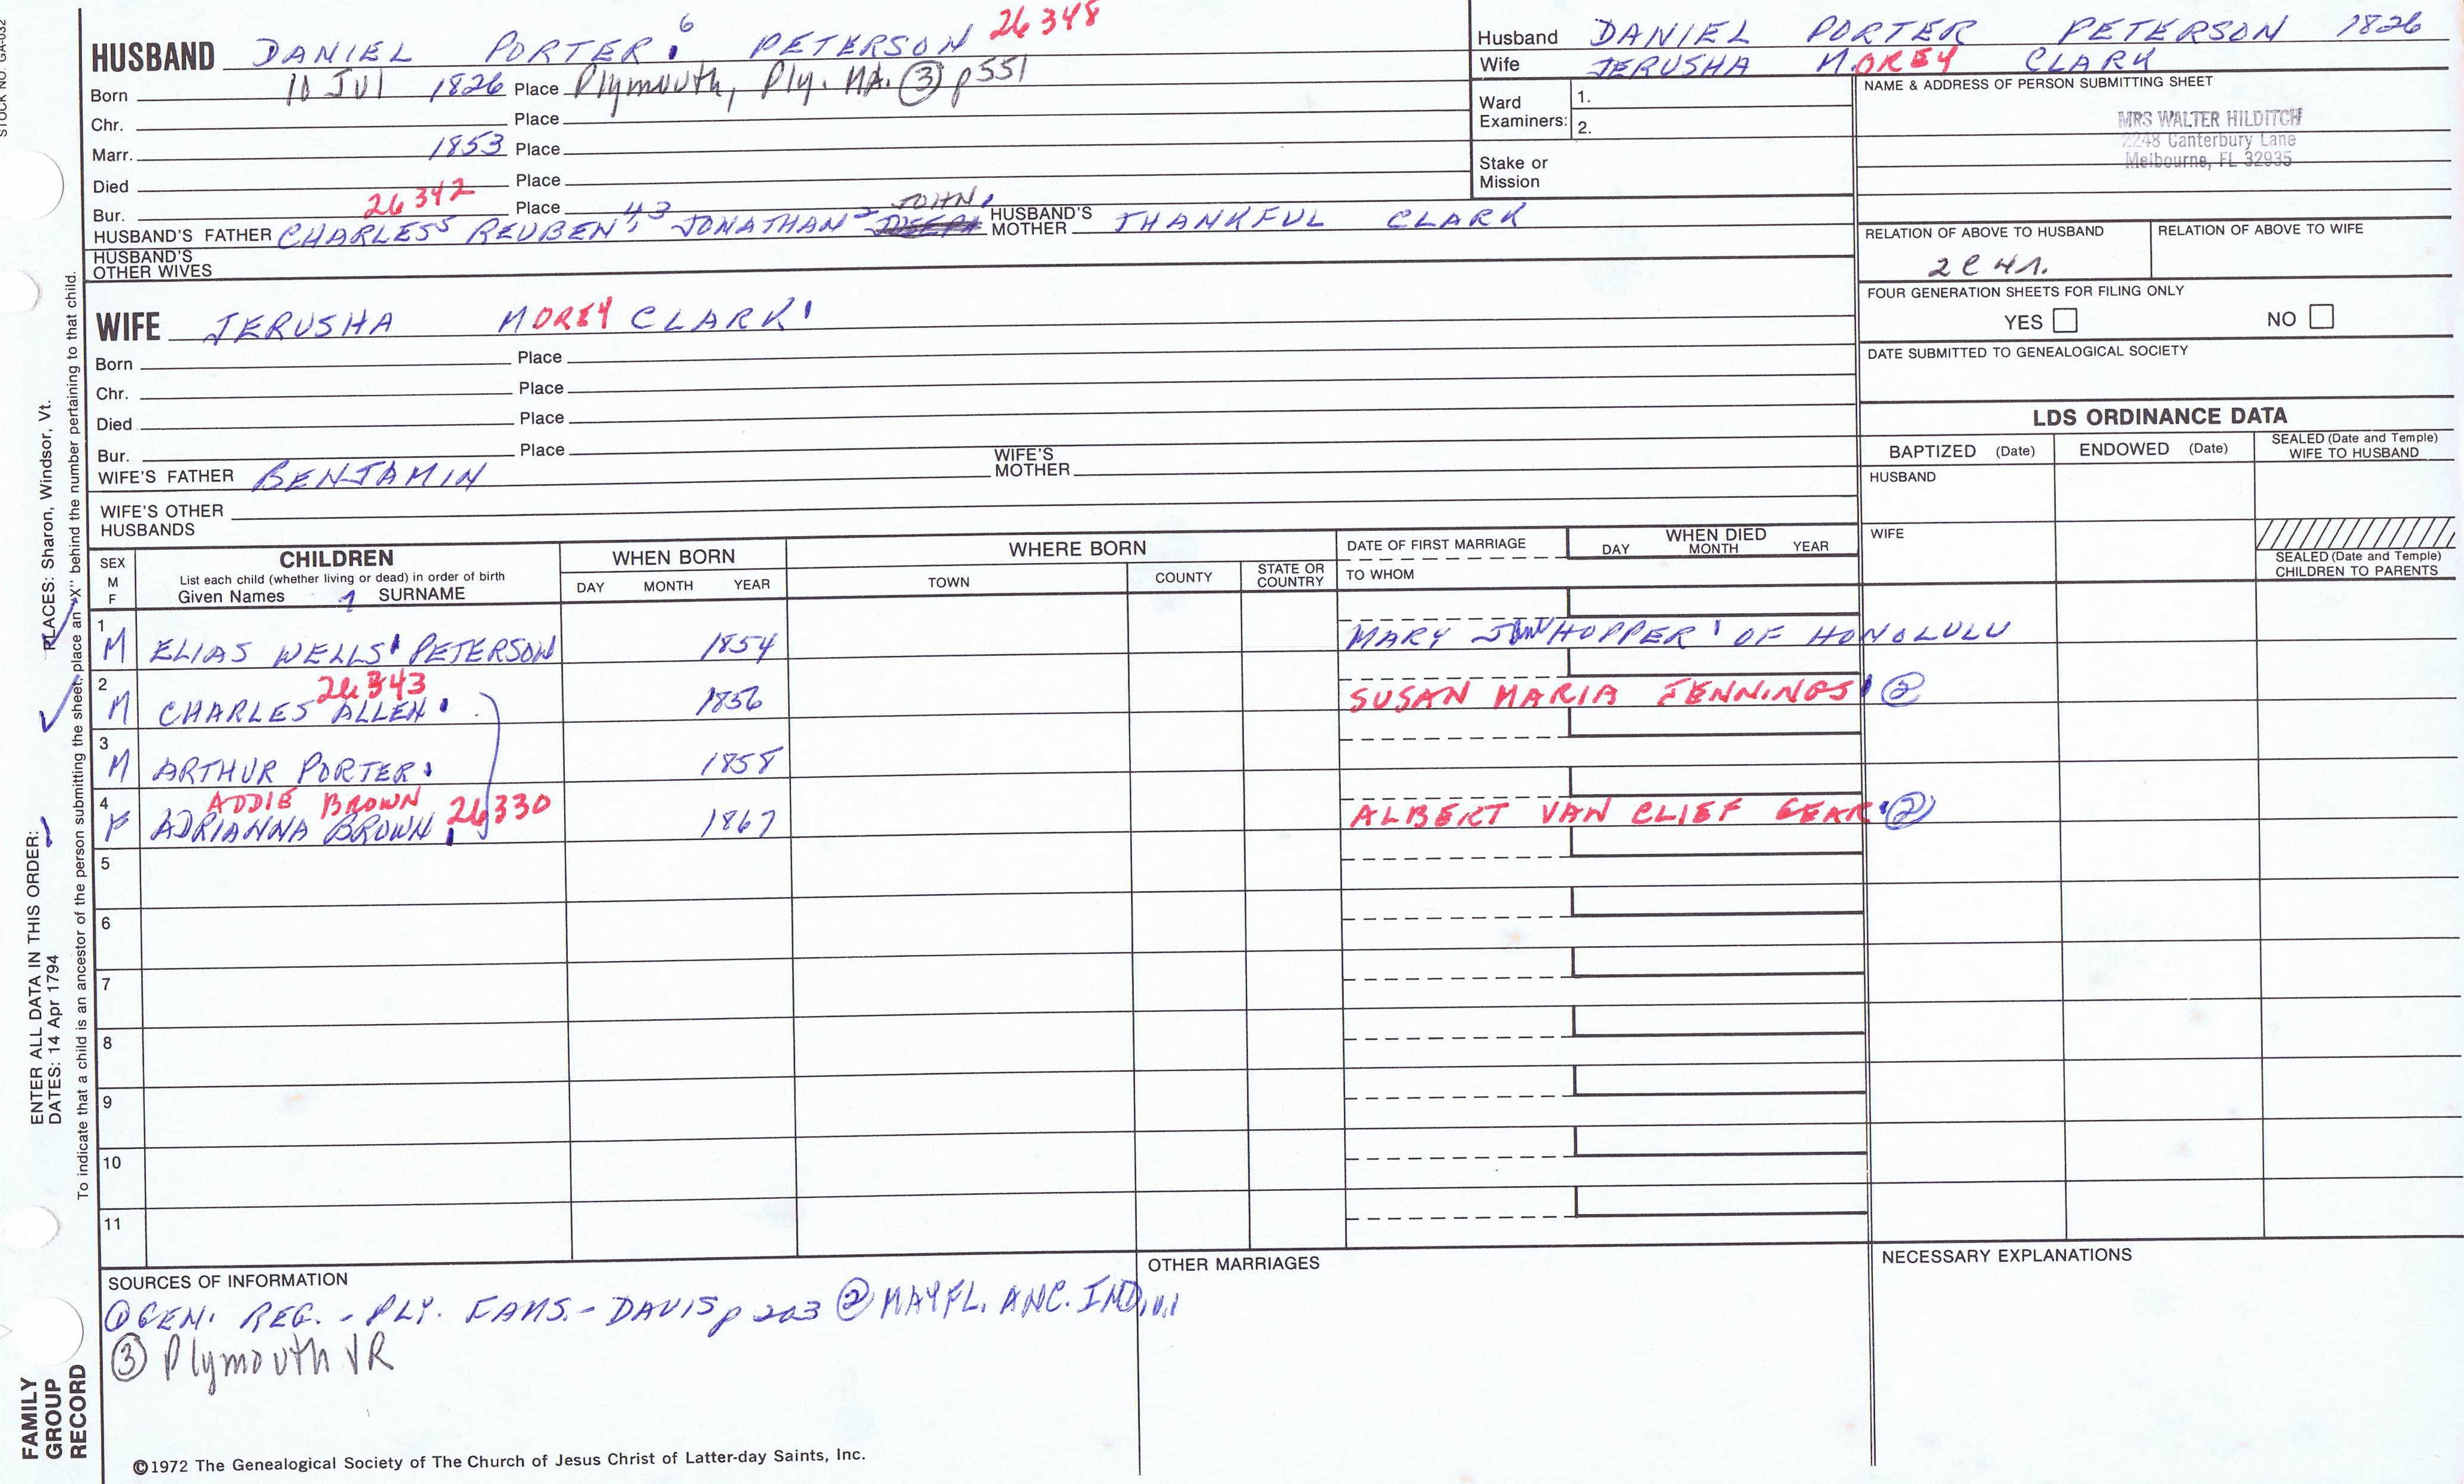 STOCK NO. GA-032
HUSBAND DANIEL PORTER 6 PETERSON 26348
Born 10 JUl 1826 Place Plymouth, Ply. MA. ③ p551
Chr. Place
Marr. 1853 Place
Died Place
Bur. 26342 Place
HUSBAND'S FATHER CHARLES5 REUBEN 43 JONATHAN2 JOHN1 HUSBAND'S MOTHER THANKFUL CLARK
HUSBAND'S OTHER WIVES
Husband DANIEL PORTER PETERSON 1826
Wife JERUSHA MOREY CLARK
Ward Examiners: 1.
2.
Stake or Mission
NAME & ADDRESS OF PERSON SUBMITTING SHEET
MRS WALTER HILDITCH
2248 Canterbury Lane
Melbourne, FL 32935
RELATION OF ABOVE TO HUSBAND RELATION OF ABOVE TO WIFE
2C4r.
FOUR GENERATION SHEETS FOR FILING ONLY
YES NO
DATE SUBMITTED TO GENEALOGICAL SOCIETY
WIFE JERUSHA MOREY CLARK
Born Place
Chr. Place
Died Place
Bur. Place
WIFE'S FATHER BENJAMIN WIFE'S MOTHER
WIFE'S OTHER HUSBANDS
LDS ORDINANCE DATA
BAPTIZED (Date) ENDOWED (Date) SEALED (Date and Temple) WIFE TO HUSBAND
HUSBAND
WIFE
SEALED (Date and Temple) CHILDREN TO PARENTS
SEX M F
CHILDREN
List each child (whether living or dead) in order of birth
Given Names 7 SURNAME
WHEN BORN
DAY MONTH YEAR
WHERE BORN
TOWN COUNTY STATE OR COUNTRY
DATE OF FIRST MARRIAGE
TO WHOM
WHEN DIED
DAY MONTH YEAR
1 M ELIAS WELLS PETERSON 1854 MARY HOPPER OF HONOLULU
26343
2 M CHARLES ALLEN 1856 SUSAN MARIA JENNINGS ②
3 M ARTHUR PORTER 1858
ADDIE BROWN 26330
4 F ADRIANNA BROWN 1867 ALBERT VAN CLIEF GEAR ②
5
6
7
8
9
10
11
SOURCES OF INFORMATION
① GEN. REG. - PLY. FAMS. - DAVIS p 203 ② MAYFL. ANC. IND. v.1
③ Plymouth VR
OTHER MARRIAGES
NECESSARY EXPLANATIONS
©1972 The Genealogical Society of The Church of Jesus Christ of Latter-day Saints, Inc.
FAMILY GROUP RECORD
ENTER ALL DATA IN THIS ORDER:
DATES: 14 Apr 1794
PLACES: Sharon, Windsor, Vt.
To indicate that a child is an ancestor of the person submitting the sheet, place an "X" behind the number pertaining to that child.